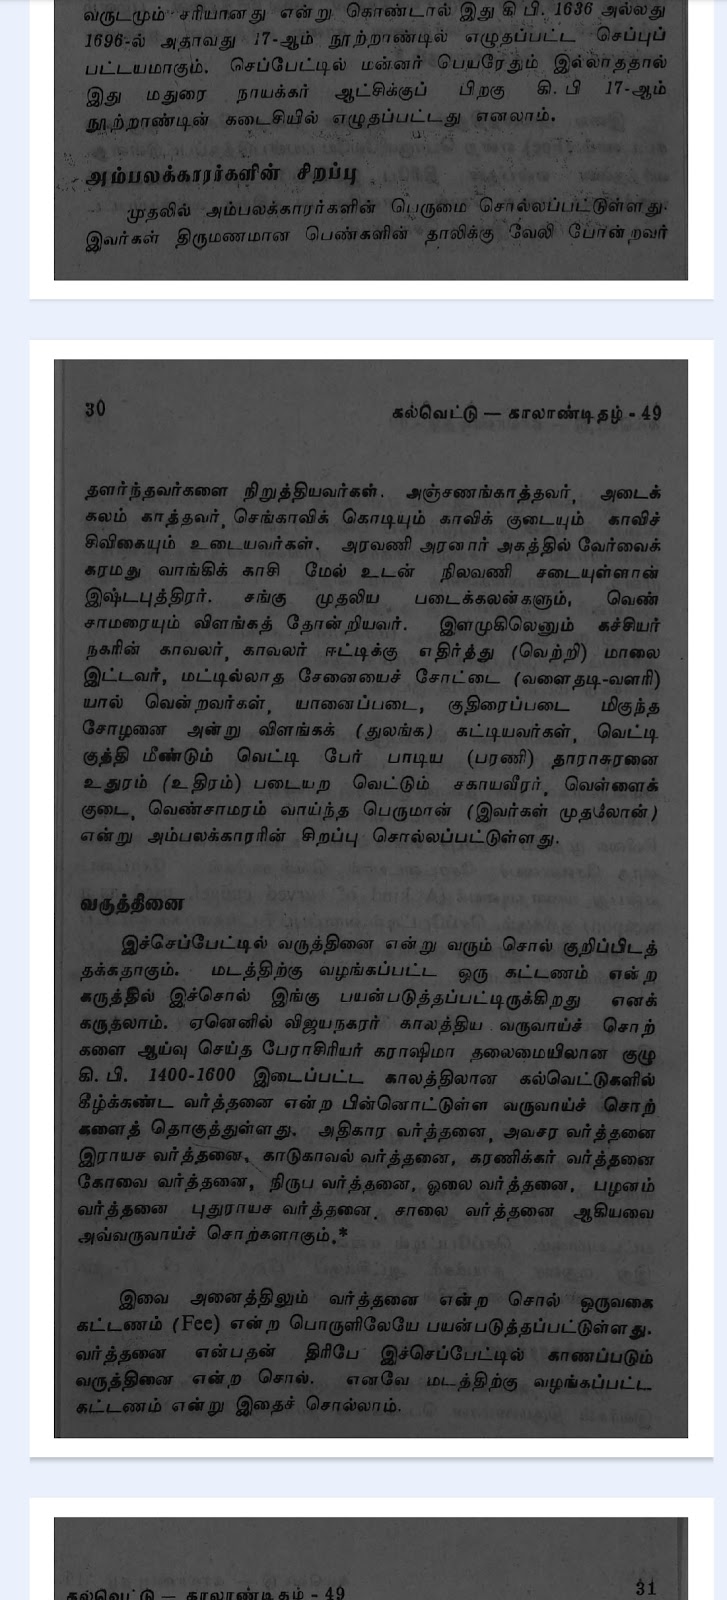 வருடமும் சரியானது என்று கொண்டால் இது கி பி. 1636 அல்லது
1696-ல் அதாவது 17-ஆம் நூற்றாண்டில் எழுதப்பட்ட செப்புப்
பட்டயமாகும். செப்பேட்டில் மன்னர் பெயரேதும் இல்லாததால்
இது மதுரை நாயக்கர் ஆட்சிக்குப் பிறகு கி. பி 17-ஆம்
நூற்றாண்டின் கடைசியில் எழுதப்பட்டது எனலாம்.
அம்பலக்காரர்களின் சிறப்பு
முதலில் அம்பலக்காரர்களின் பெருமை சொல்லப்பட்டுள்ளது.
இவர்கள் திருமணமான பெண்களின் தாலிக்கு வேலி போன்றவர்
30
கல்வெட்டு — காலாண்டிதழ் - 49
தளர்ந்தவர்களை நிறுத்தியவர்கள். அஞ்சணங்காத்தவர், அடைக்
கலம் காத்தவர், செங்காவிக் கொடியும் காவிக் குடையும் காவிச்
சிவிகையும் உடையவர்கள். அரவணி அரனார் அகத்தில் வேர்வைக்
கரமது வாங்கிக் காசி மேல் உடன் நிலவணி சடையுள்ளான்
இஷ்டபுத்திரர். சங்கு முதலிய படைக்கலன்களும், வெண்
சாமரையும் விளங்கத் தோன்றியவர். இளமுகிலெனும் கச்சியர்
நகரின் காவலர், காவலர் ஈட்டிக்கு எதிர்த்து (வெற்றி) மாலை
இட்டவர், மட்டில்லாத சேனையைச் சோட்டை (வளைதடி-வளரி)
யால் வென்றவர்கள், யானைப்படை, குதிரைப்படை மிகுந்த
சோழனை அன்று விளங்கக் (துலங்க) கட்டியவர்கள், வெட்டி
குத்தி மீண்டும் வெட்டி பேர் பாடிய (பரணி) தாராசுரனை
உதுரம் (உதிரம்) படையற வெட்டும் சகாயவீரர், வெள்ளைக்
குடை, வெண்சாமரம் வாய்ந்த பெருமான் (இவர்கள் முதலோன்)
என்று அம்பலக்காரரின் சிறப்பு சொல்லப்பட்டுள்ளது.
வருத்தினை
இச்செப்பேட்டில் வருத்தினை என்று வரும் சொல் குறிப்பிடத்
தக்கதாகும். மடத்திற்கு வழங்கப்பட்ட ஒரு கட்டணம் என்ற
கருத்தில் இச்சொல் இங்கு பயன்படுத்தப்பட்டிருக்கிறது எனக்
கருதலாம். ஏனெனில் விஜயநகரர் காலத்திய வருவாய்ச் சொற்
களை ஆய்வு செய்த பேராசிரியர் கராஷிமா தலைமையிலான குழு
கி. பி. 1400-1600 இடைப்பட்ட காலத்திலான கல்வெட்டுகளில்
கீழ்க்கண்ட வர்த்தனை என்ற பின்னொட்டுள்ள வருவாய்ச் சொற்
களைத் தொகுத்துள்ளது. அதிகார வர்த்தனை, அவசர வர்த்தனை
இராயச வர்த்தனை, காடுகாவல் வர்த்தனை, கரணிக்கர் வர்த்தனை
கோவை வர்த்தனை, நிருப வர்த்தனை, ஓலை வர்த்தனை, பழனம்
வர்த்தனை புதுராயச வர்த்தனை, சாலை வர்த்தனை ஆகியவை
அவ்வருவாய்ச் சொற்களாகும்.*
இவை அனைத்திலும் வர்த்தனை என்ற சொல் ஒருவகை
கட்டணம் (Fee) என்ற பொருளிலேயே பயன்படுத்தப்பட்டுள்ளது.
வர்த்தனை என்பதன் திரிபே இச்செப்பேட்டில் காணப்படும்
வருத்தினை என்ற சொல். எனவே மடத்திற்கு வழங்கப்பட்ட
கட்டணம் என்று இதைச் சொல்லாம்.
கல்வெட்டு — காலாண்டிதழ் - 49
31